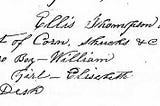 Ellis Thompson
t of Corn, Shucks & C
o Boy - William
Girl - Elizabeth
Desk